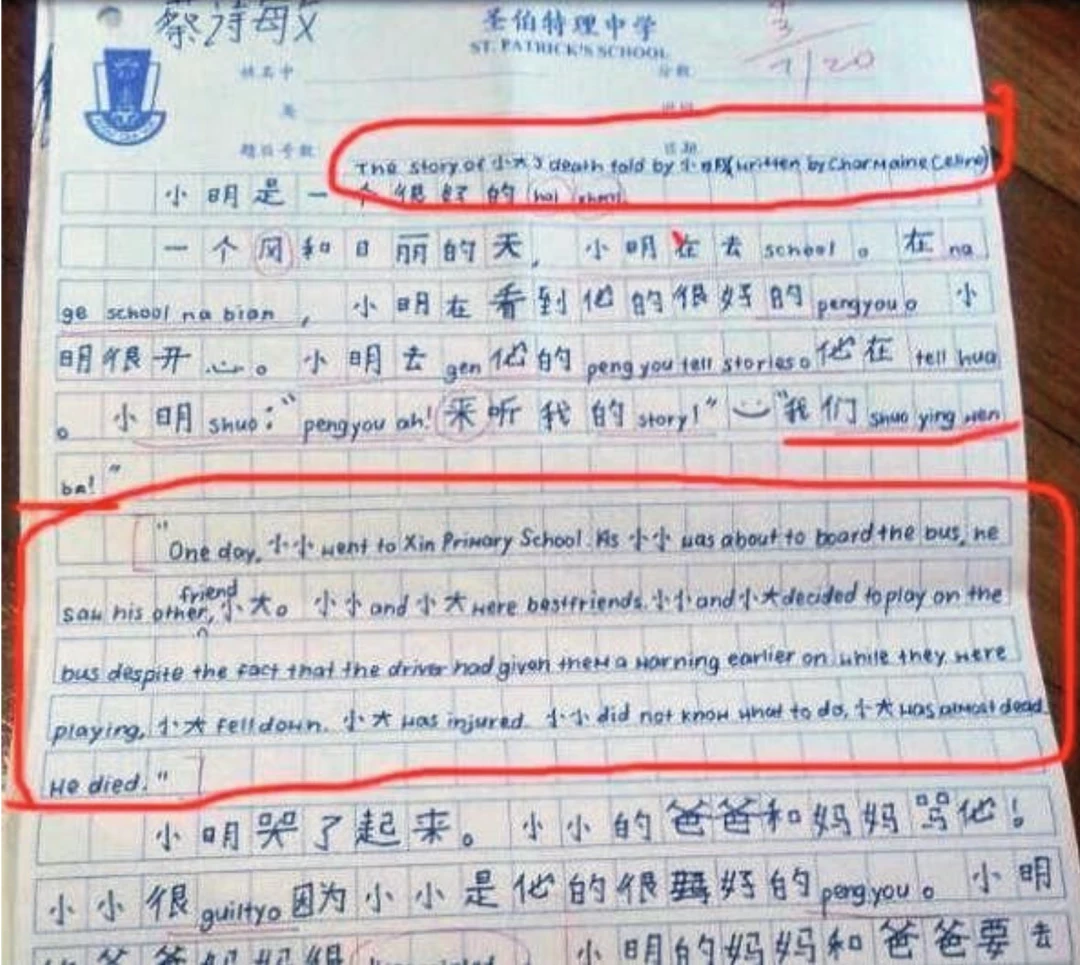 蔡诗敏
圣伯特理中学
ST. PATRICK'S SCHOOL
7/20
The story of 小大's death told by 小明 (written by Charmaine Celine)
小明是一个很好的 (hai zhen)
一个风和日丽的天，小明在去 school。在 na
ge school na bian，小明在看到他的很好的 pengyou。小
明很开心。小明去 gen 他的 peng you tell stories。他在 tell hua
。小明 shuo："pengyou ah! 来听我的 story!" "我们 shuo ying wen
ba!"
"One day, 小小 went to Xin Primary School. As 小小 was about to board the bus, he
saw his other friend, 小大。小小 and 小大 were bestfriends. 小小 and 小大 decided to play on the
bus despite the fact that the driver had given them a warning earlier on. While they were
playing, 小大 fell down. 小大 was injured. 小小 did not know what to do, 小大 was almost dead.
He died."
小明哭了起来。小小的爸爸和妈妈骂他！
小小很 guilty。因为小小是他的很好的 peng you。小明
的爸爸妈妈很 小明的妈妈和爸爸要去